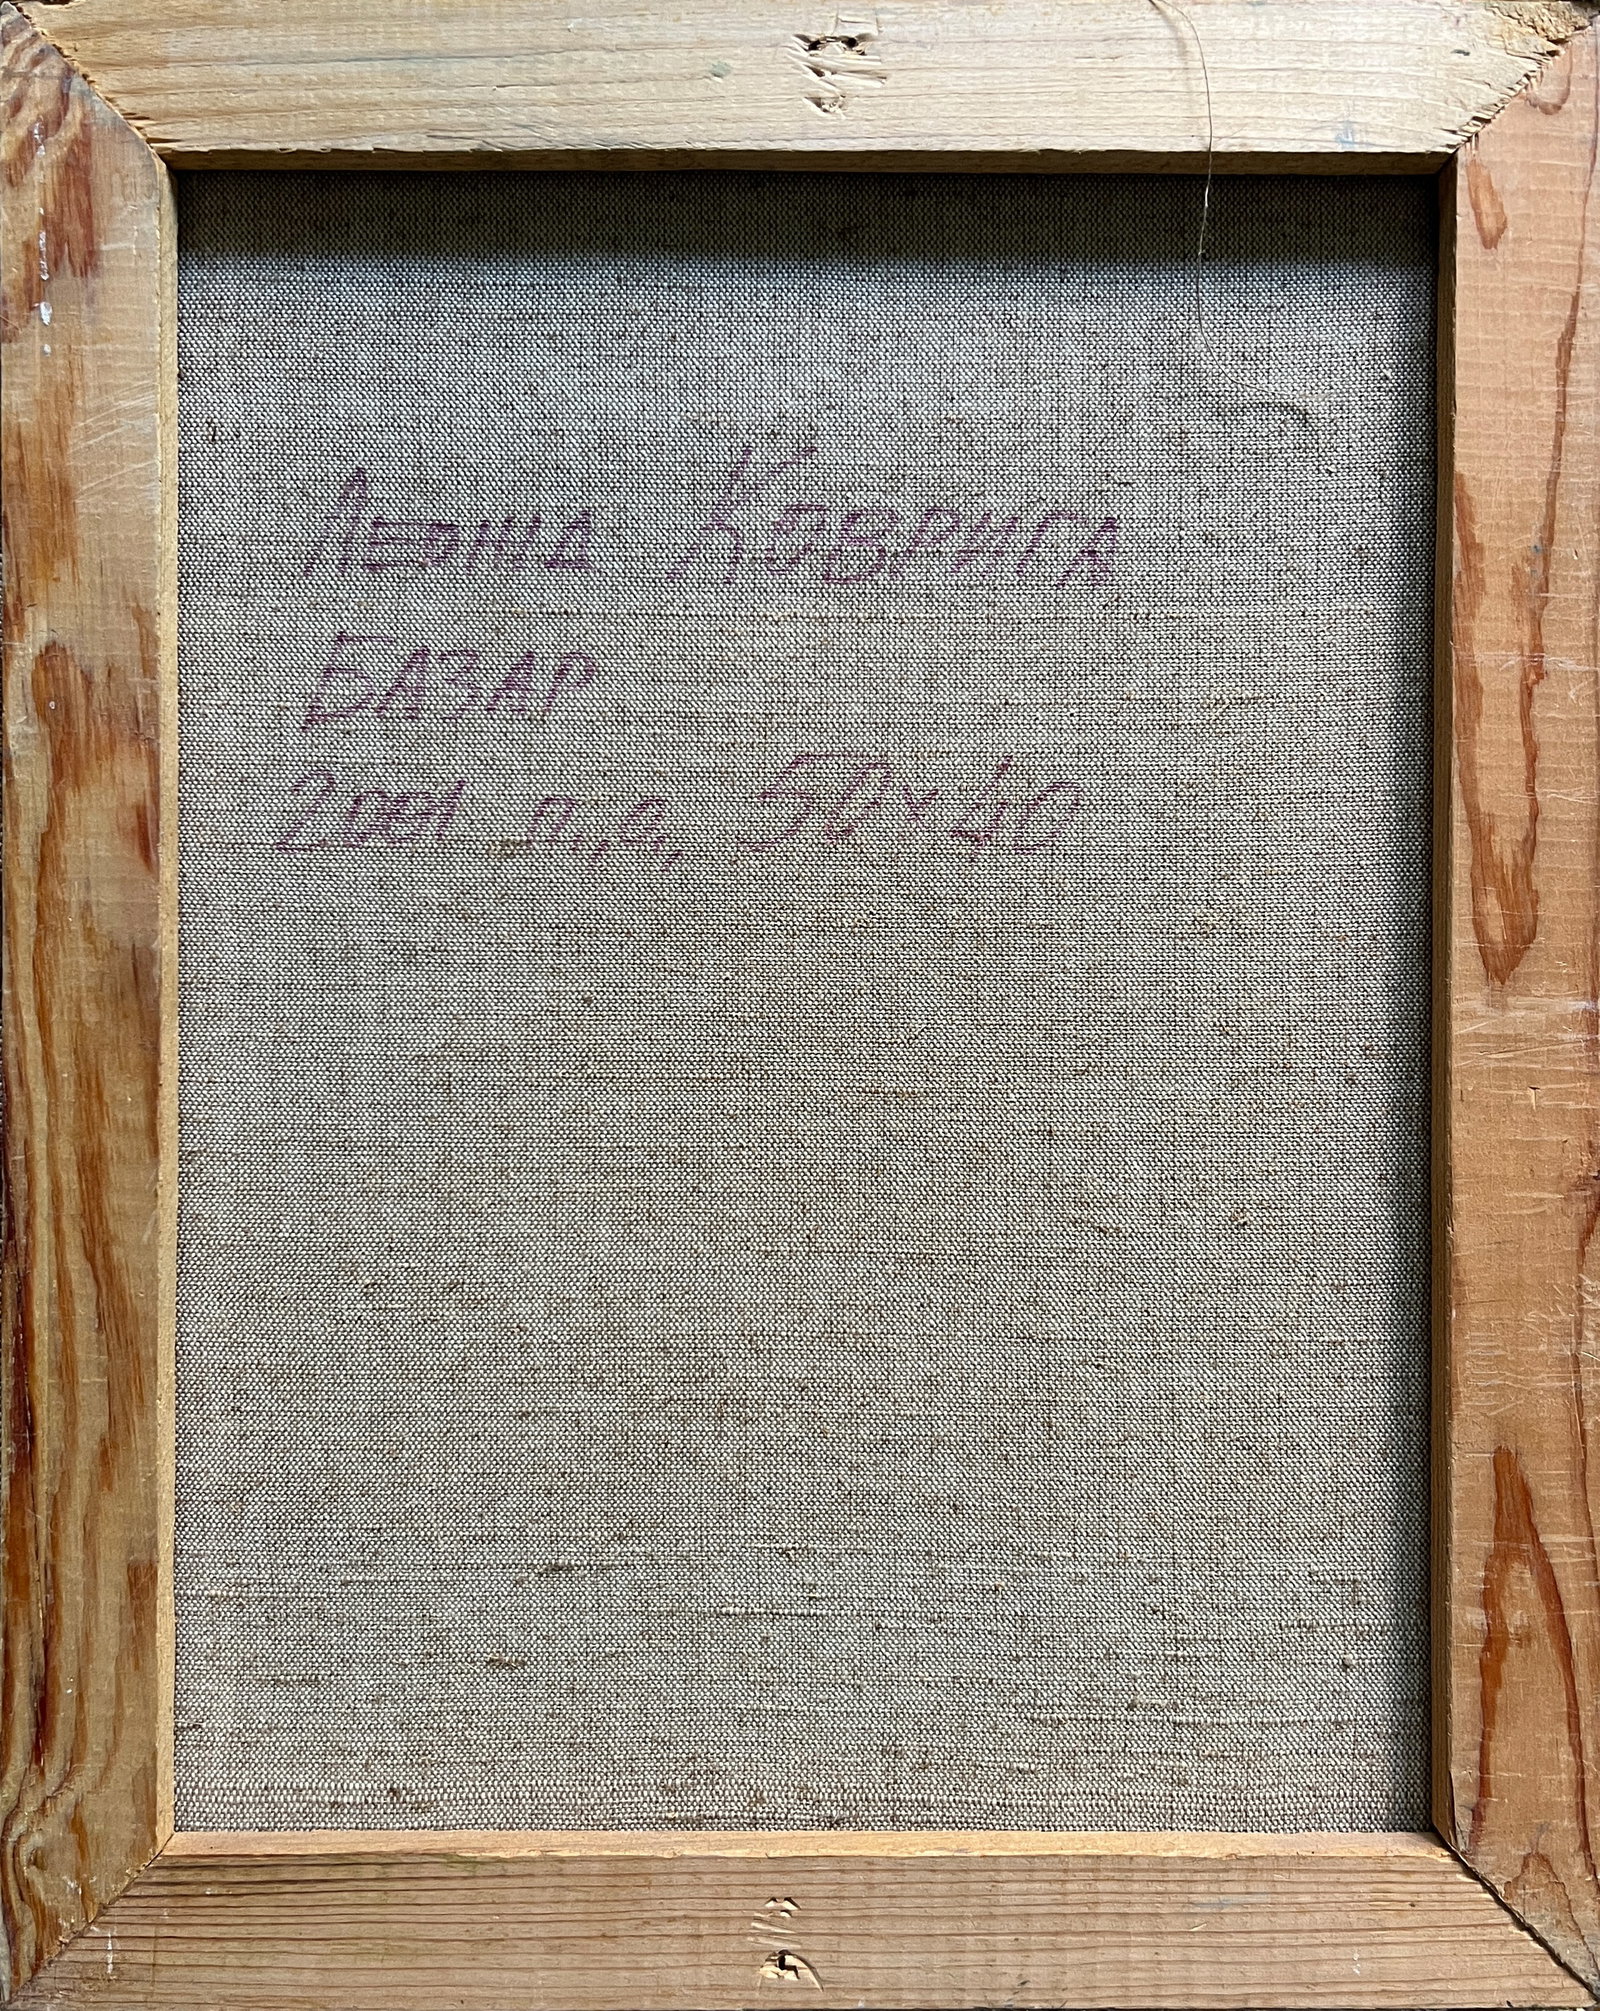 Леонид Коврига
Базар
2001 п.,а., 50x40